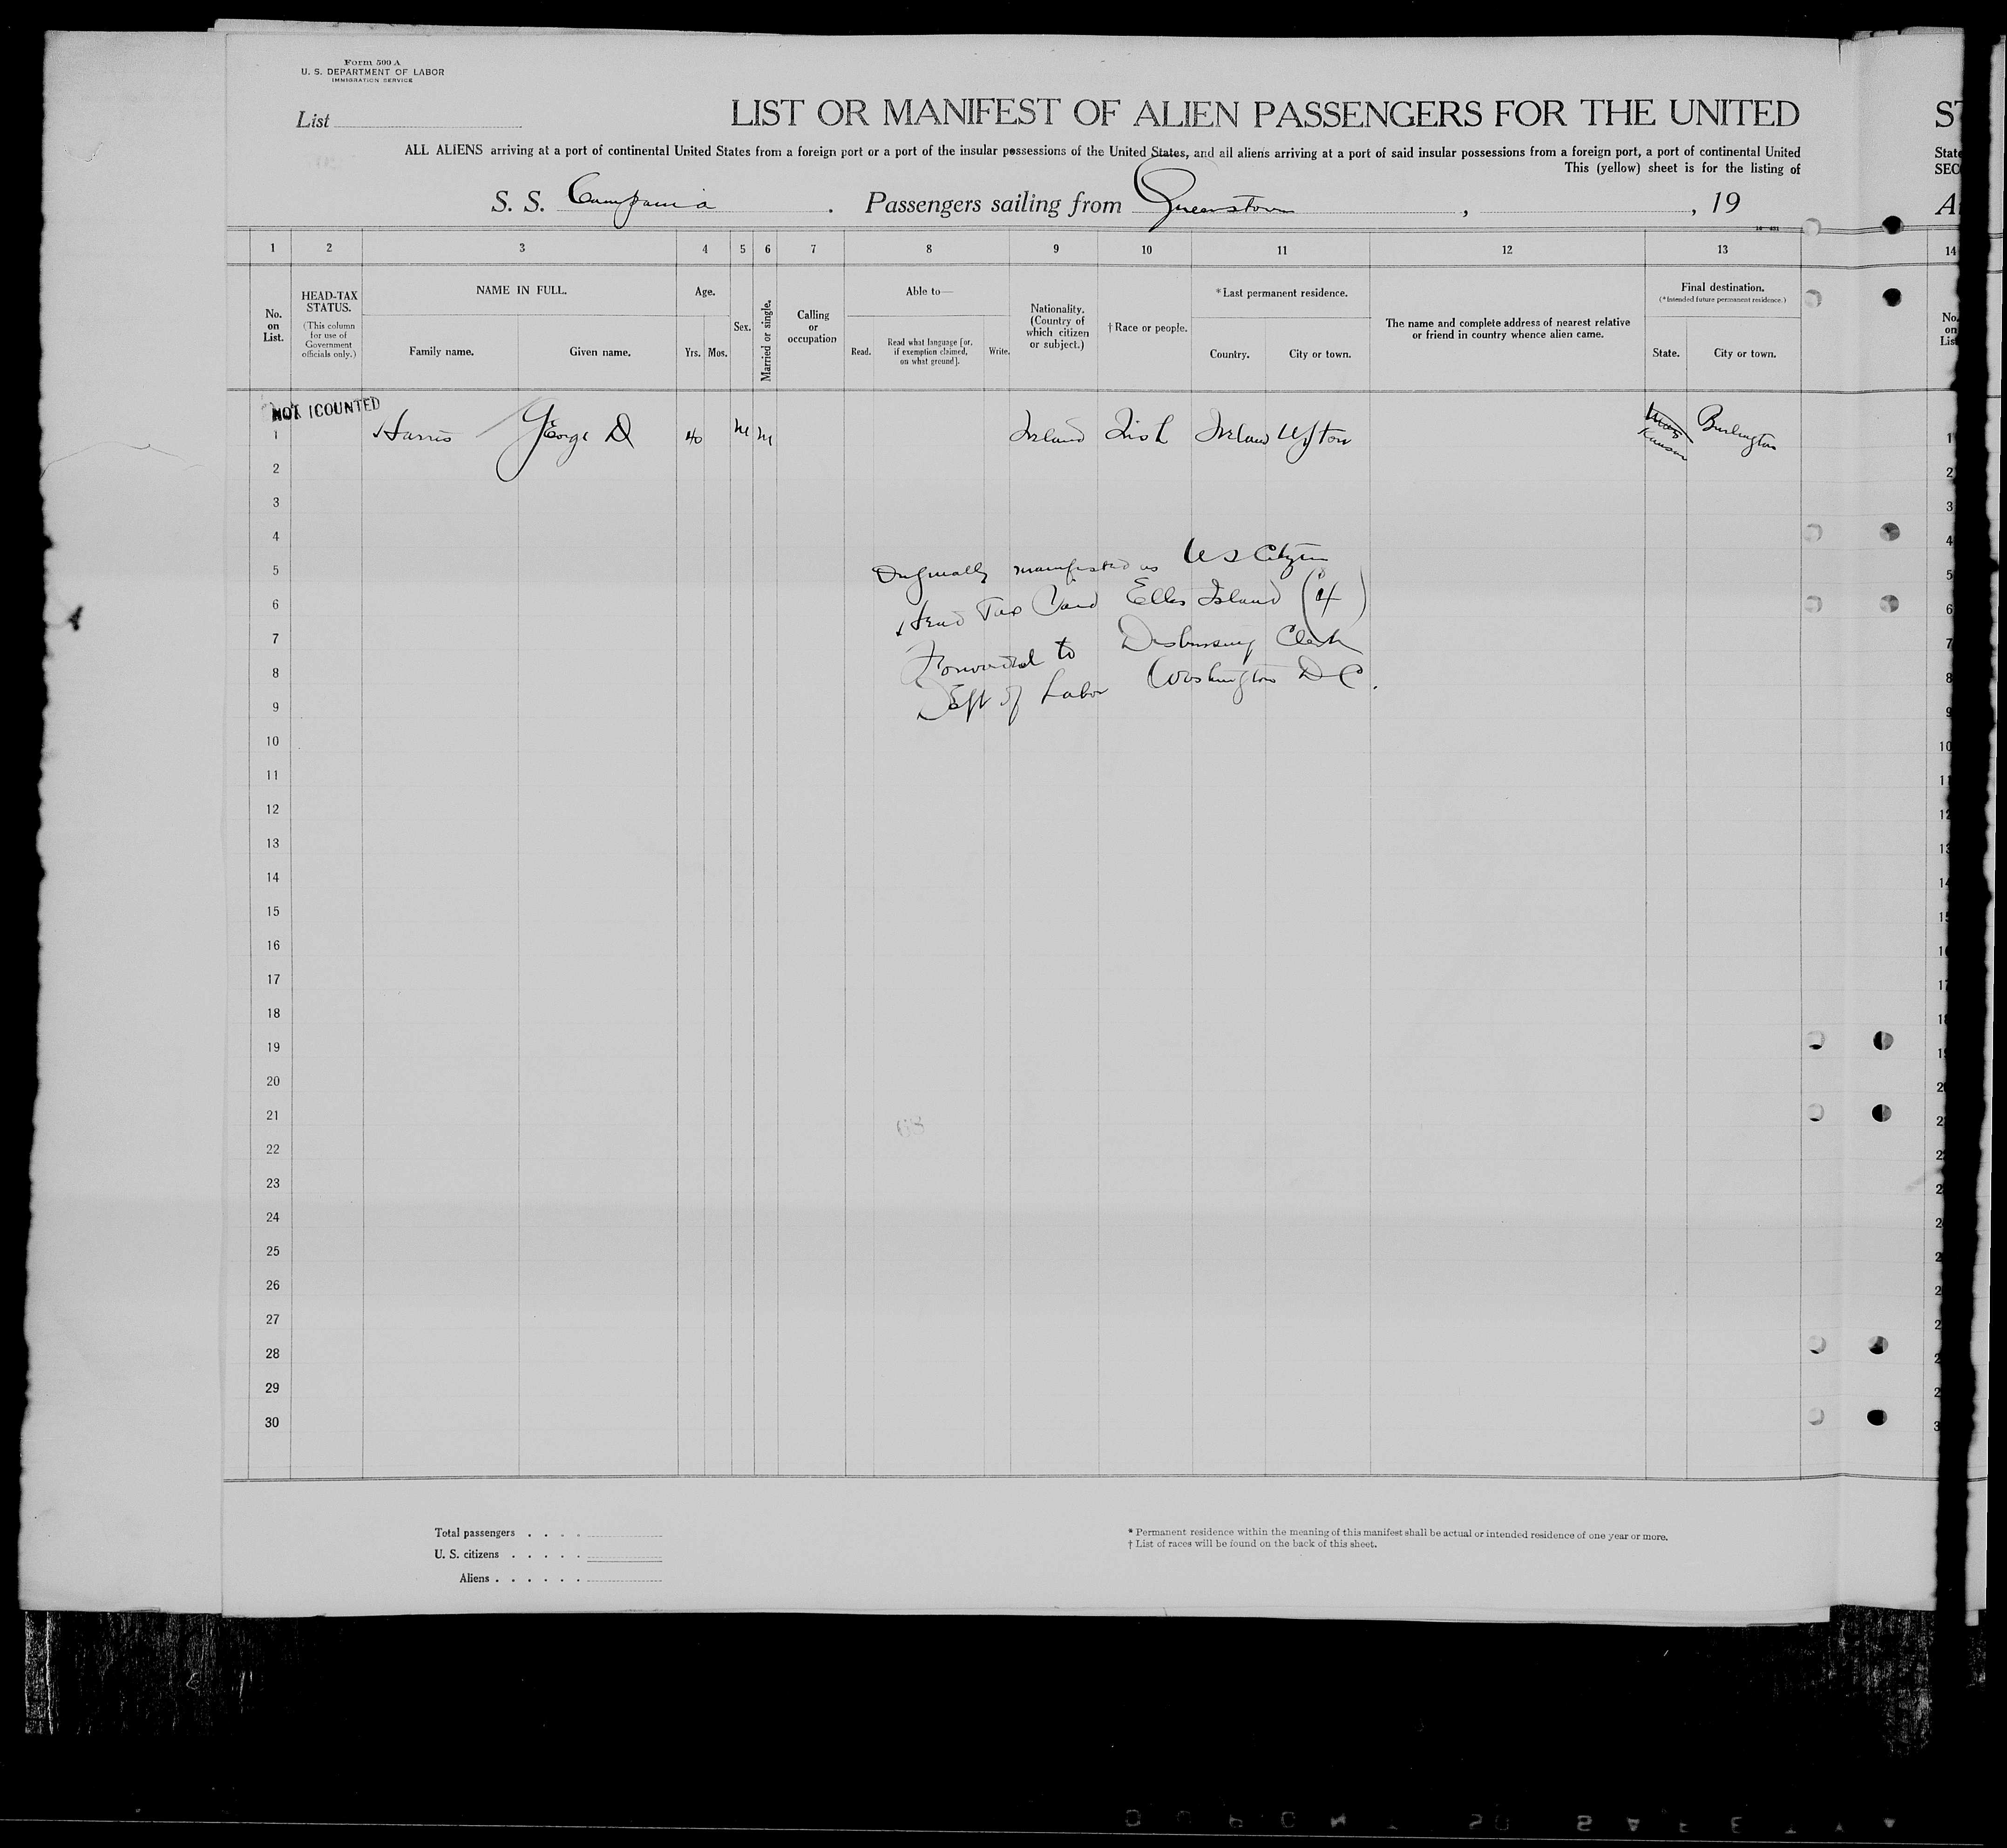 Form 500 A
U. S. DEPARTMENT OF LABOR
IMMIGRATION SERVICE
List
LIST OR MANIFEST OF ALIEN PASSENGERS FOR THE UNITED
ALL ALIENS arriving at a port of continental United States from a foreign port or a port of the insular possessions of the United States, and all aliens arriving at a port of said insular possessions from a foreign port, a port of continental United
This (yellow) sheet is for the listing of
S. S. Campania . Passengers sailing from Queenstown , , 19
ST
State
SEC
A
1 2 3 4 5 6 7 8 9 10 11 12 13 14
No. on List.
HEAD-TAX STATUS.
(This column for use of Government officials only.)
NAME IN FULL.
Family name. Given name.
Age.
Yrs. Mos.
Sex.
Married or single.
Calling or occupation
Able to—
Read. Read what language [or, if exemption claimed, on what ground]. Write.
Nationality. (Country of which citizen or subject.)
† Race or people.
*Last permanent residence.
Country. City or town.
The name and complete address of nearest relative or friend in country whence alien came.
Final destination.
(*Intended future permanent residence.)
State. City or town.
No. on List
NOT COUNTED
1 Harris George D 40 M M Ireland Irish Ireland Kansas Burlington 1
2
3
4
5
6
7
8
9
10
11
12
13
14
15
16
17
18
19
20
21
22
23
24
25
26
27
28
29
30
Originally manifested as U S Citizen
Head Tax Paid Ellis Island ($4)
Forwarded to Disbursing Clerk
Dept of Labor Washington D C.
Total passengers . . . .
U. S. citizens . . . . .
Aliens . . . . . .
* Permanent residence within the meaning of this manifest shall be actual or intended residence of one year or more.
† List of races will be found on the back of this sheet.